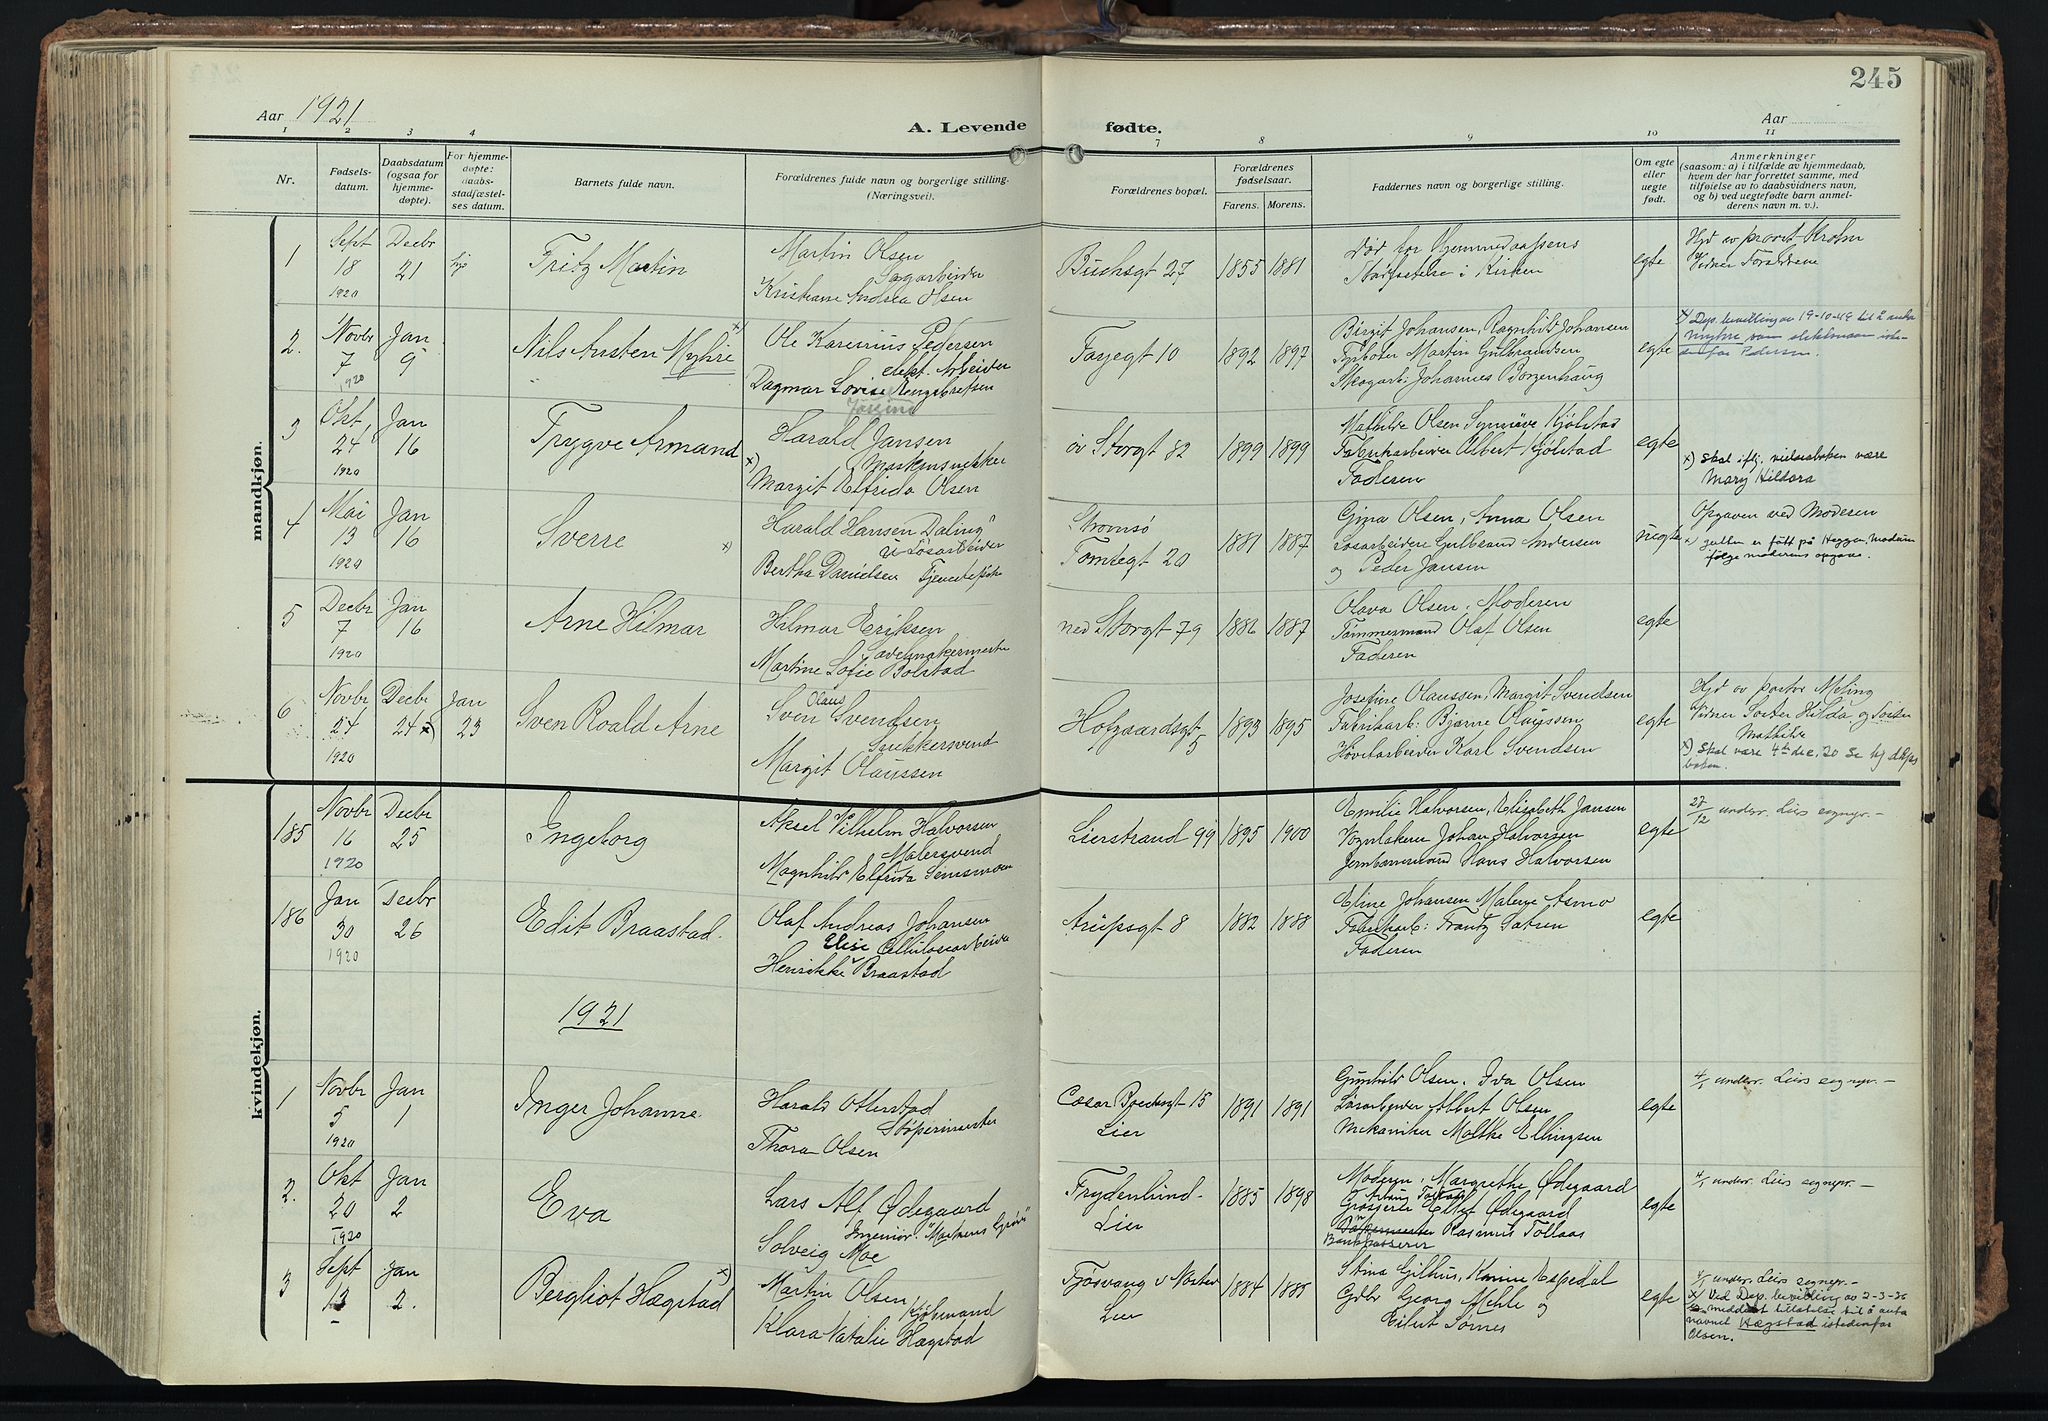 245
Aar 1921
A. Levende fødte.
Aar
1 2 3 4 7 8 9 10 11
Nr.
Fødsels-
datum.
Daabsdatum
(ogsaa for
hjemme-
døpte).
For hjemme-
døpte:
daabs-
stadfæstel-
ses datum.
Barnets fulde navn.
Forældrenes fulde navn og borgerlige stilling.
(Næringsvei).
Forældrenes bopæl.
Forældrenes
fødselsaar.
Farens. Morens.
Faddernes navn og borgerlige stilling.
Om egte
eller
uegte
født.
Anmerkninger
(saasom: a) i tilfælde av hjemmedaab,
hvem der har forrettet samme, med
tilføielse av to daabsvidners navn,
og b) ved uegtefødte barn anmel-
derens navn m. v.).
mandkjøn.
1
Sept
18
1920
Decbr
21
Fritz Martin
Martin Olsen
Sagarbeider
Kristiane Andrea Olsen
Buchsgt 27
1855 1881
Død før Hjemmedaapens
Stadfæstelse i Kirken
egte
Hjd av provst Holm
Vidner Forældrene
2.
Novbr
7
1920
Jan
9
Nils Austen Myhre x)
Ole Karenius Pedersen
elekt. Arbeider
Dagmar Lovise Engebretsen
Torgegt 10
1892 1897
Birgit Johansen, Ragnhild Johansen
Typboter Martin Gulbrandsen
Skogarb: Johannes Borgenhaug
egte
x) Dep. bevilling av 19-10-49 til å anta
Myhre som slektsnavn iste-
denfor Pedersen.
3
Okt
24
1920
Jan
16
Trygve Armand
Harald Jansen
Maskinsnekker
x) Margit Elfrida Olsen
øv Storgt 82
1899 1899
Mathilde Olsen Synnøve Kjølstad
Fabrikarbeider Albert Kjølstad
Faderen
egte
x) Skal iflg. vielsesboken være
Mary Hildora
4
Mai
13
1920
Jan
16
Sverre x)
Harald Hansen Daling
u Løsarbeider
Bertha Danielsen Tjenestepike
Strømsø
Tomtegt 20
1881 1887
Gina Olsen, Anna Olsen
Løsarbeidere Gulbrand Andersen
og Peder Jansen
uegte
Opgaven ved Moderen
x gutten er født på Heggen, Modum
følge moderens opgave.
5
Decbr
7
1920
Jan
16
Arne Hilmar
Hilmar Eriksen
Savelmakermester
Martine Sofie Bolstad
ned Storgt 79
1886 1887
Olava Olsen. Moderen
Tømmermand Olaf Olsen
Faderen
egte
6
Novbr
24
1920
Decbr
24 x)
Jan
23
Sven Roald Arne
Olaus
Sven Svendsen
Snekkersvend
Margit Olaussen
Hofgaardsgt
5
1893 1895
Josefine Olaussen, Margit Svendsen
Fabrikarb: Bjarne Olaussen
Høvelarbeider Karl Svendsen
egte
Hjd av pastor Meling
Vidner Søster Hilda og Søster
Mathilde
x) Skal være 4de dec. 20 Se hj dåps
boken.
kvindekjøn.
185
Novbr
16
1920
Decbr
25
Ingeborg
Aksel Vilhelm Halvorsen
Malersvend
Magnhild Elfrida Simesmoen
Lierstrand 99
1895 1900
Emilie Halvorsen, Elisabeth Jansen
Vognlakerer Johan Halvorsen
Jernbanemand Hans Halvorsen
egte
27/12 underr. Liers sognepr. -
186
Jan
30
1920
Decbr
26
Edit Braastad.
Olaf Andreas Johansen
Cellulosearbeider
Elise
Henrikke Braastad
Arupsgt 8
1882 1888
Eline Johansen Malene Asmo
Fabrikarb: Frantz Sätren
Faderen
egte
1921
1
Novbr
5
1920
Jan
1
Inger Johanne
Harald Otterstad
Støpermester
Thora Olsen
Cæsar Boecksgt 15
Lier
1891 1891
Gunhild Olsen. Iva Olsen
Løsarbeider Albert Olsen
Mekaniker Moltke Ellingsen
egte
4/1 underr. Liers sognepr. -
2.
Okt
20
1920
Jan
2
Eva
Lars Alf Ødegaard
Ingeniør.
Solveig Moe
Frydenlund-
Lier
1885 1898
Moderen. Margrethe Ødegaard
Grosserer Ellef Ødegaard
Rasmus Tollaas
Bankkasserer
egte
4/1 underr. Liers sognepr. -
3
Sept
13
Jan
2.
Bergliot Hægstad x)
Martin Olsen
Kjøbmand
Klara Natalie Hægstad
Tjøsvang v Nøsted
Lier
1884 1885
Stina Gilhus, Karine Espedal
Gdbr Georg Mehle og
Eilert Sørnes
egte
4/1 underr. Liers sognepr. -
x) Ved Dep. bevilling av 2-3-26
er meddelt tillatelse til å anta
navnet Hægstad istedenfor
Olsen.